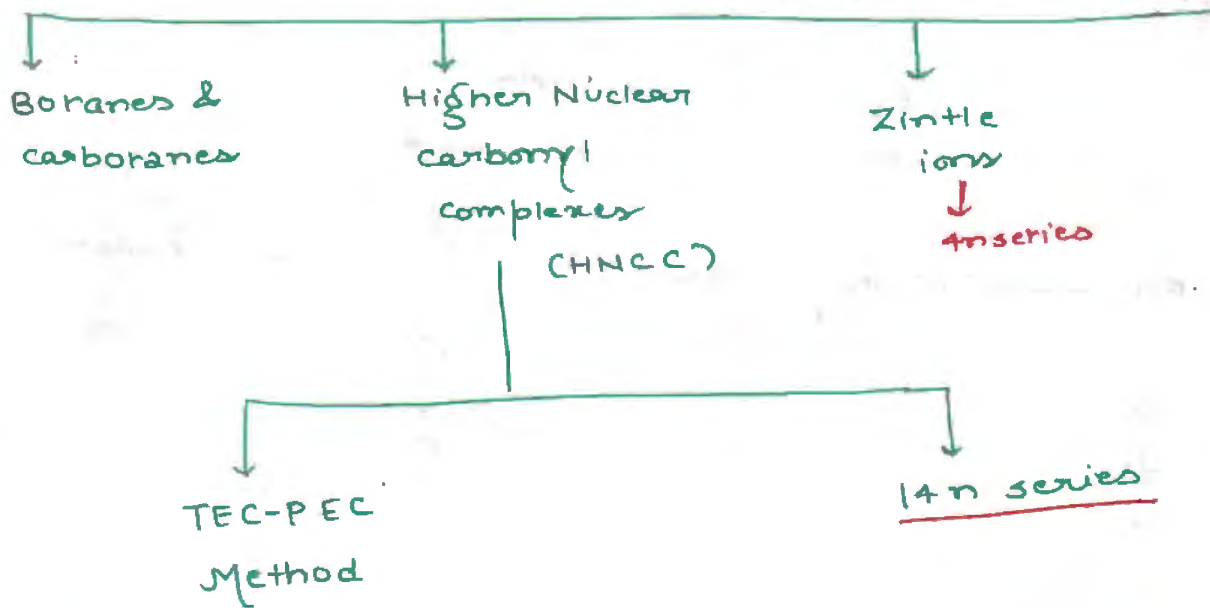 Boranes &
carboranes
Higher Nuclear
carbonyl
complexes
(HNCC)
Zintle
ions
4n series
TEC-PEC
Method
14n series